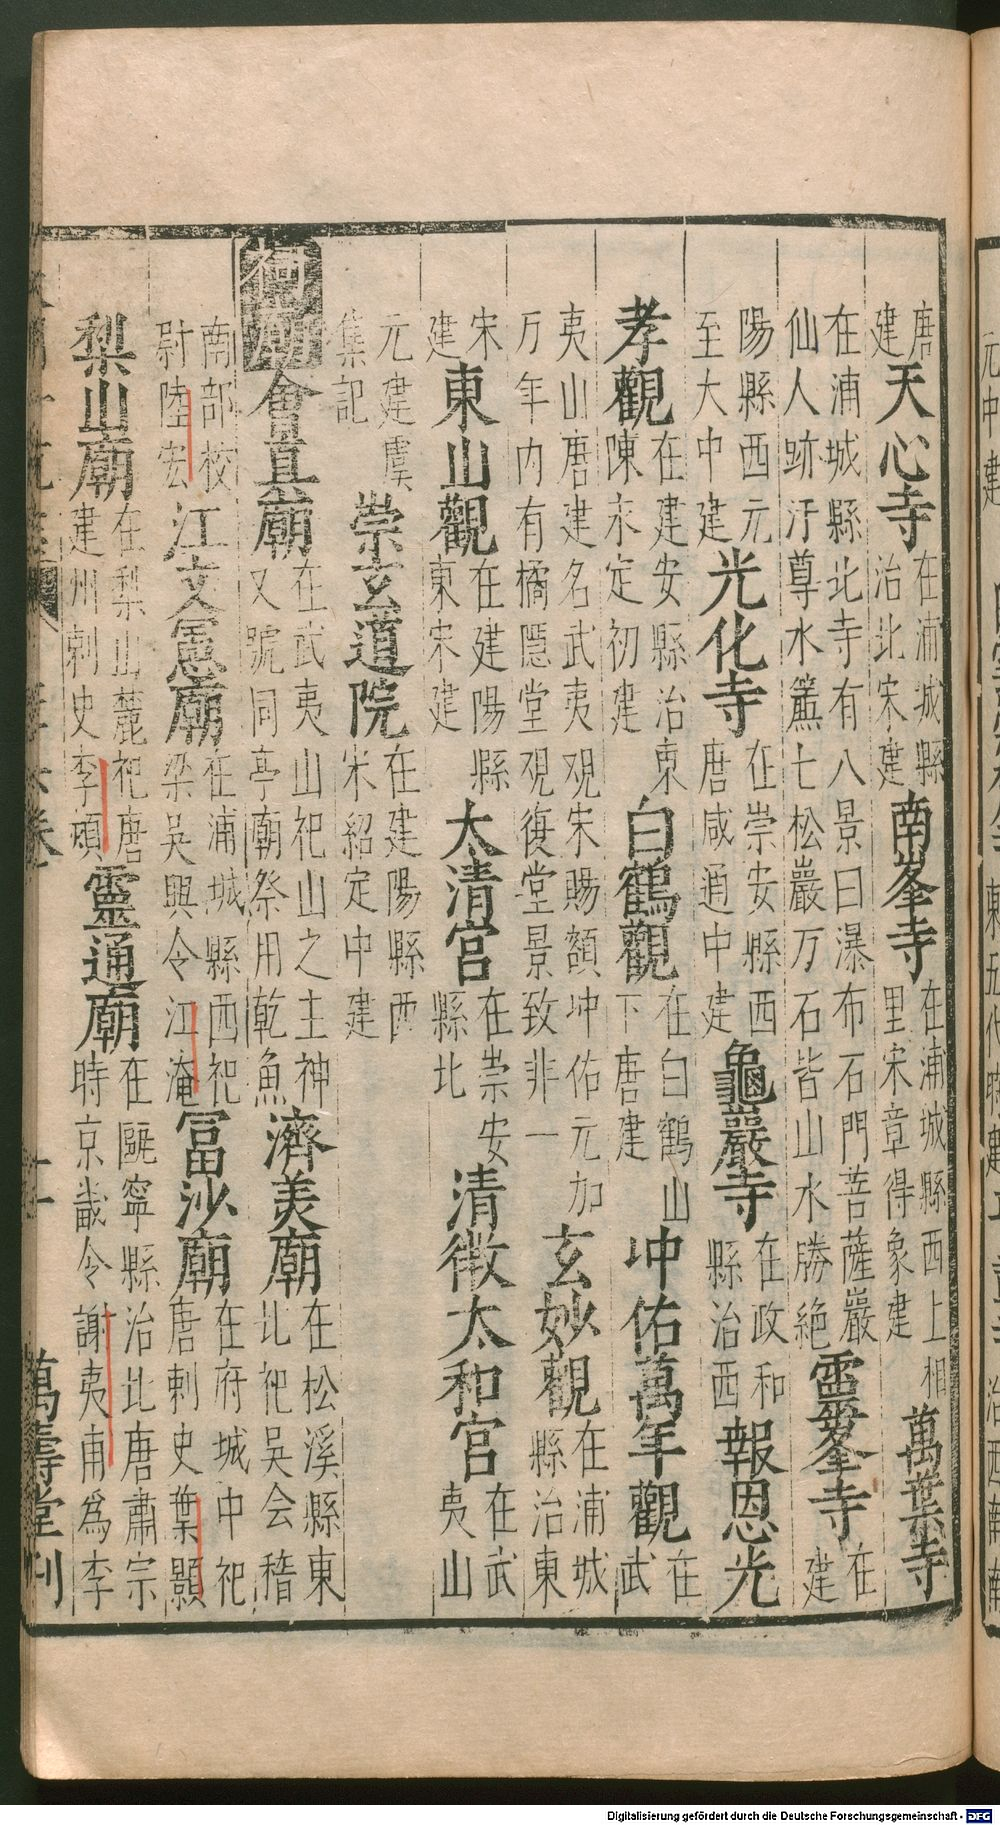 唐建天心寺在浦城縣治北宋建南峯寺在浦城縣西上相里宋章得象建萬葉寺
在浦城縣北寺有八景曰瀑布石門菩薩巖仙人跡汙尊水簾七松巖万石皆山水勝絶靈峯寺在建
陽縣西元至大中建光化寺在崇安縣西唐咸通中建龜巖寺在政和縣治西報恩光
孝觀在建安縣治東陳永定初建白鶴觀在白鶴山下唐建冲佑萬年觀在武
夷山唐建名武夷观宋賜額冲佑元加万年内有橘隠堂观復堂景致非一玄妙觀在浦城縣治東
宋建東山觀在建陽縣東宋建太清宫在崇安縣北清微太和宫在武夷山
元建虞集記崇玄道院在建陽縣西宋紹定中建
祠廟會真廟在武夷山祀山之主神又號同亭廟祭用乾魚濟美廟在松溪縣東北祀吴会稽
南部校尉陸宏江文憲廟在浦城縣西祀梁吴興令江淹冨沙廟在府城中祀唐刺史葉顥
梨山廟在梨山麓祀唐建州刺史李頻靈通廟在甌寧縣治北唐肅宗時京畿令謝夷甫爲李
萬壽堂刊
Digitalisierung gefördert durch die Deutsche Forschungsgemeinschaft - DFG